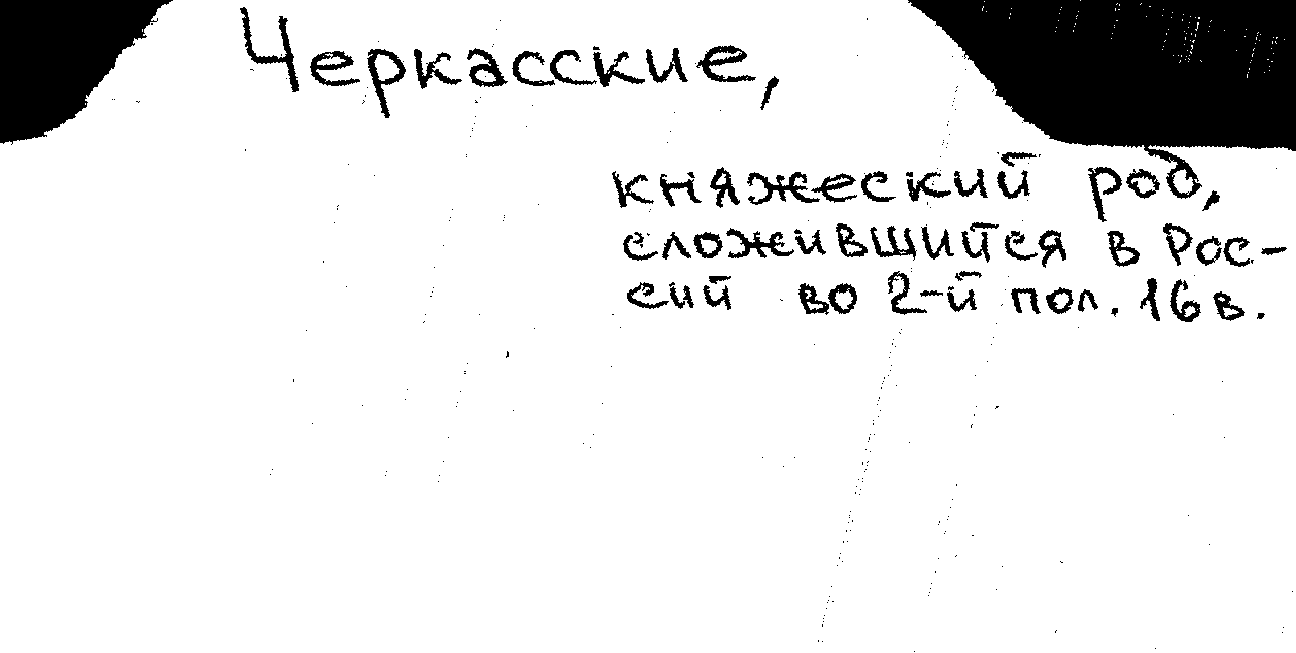 Черкасские,
княжеский род,
сложившийся в Рос-
сий во 2-й пол. 16 в.